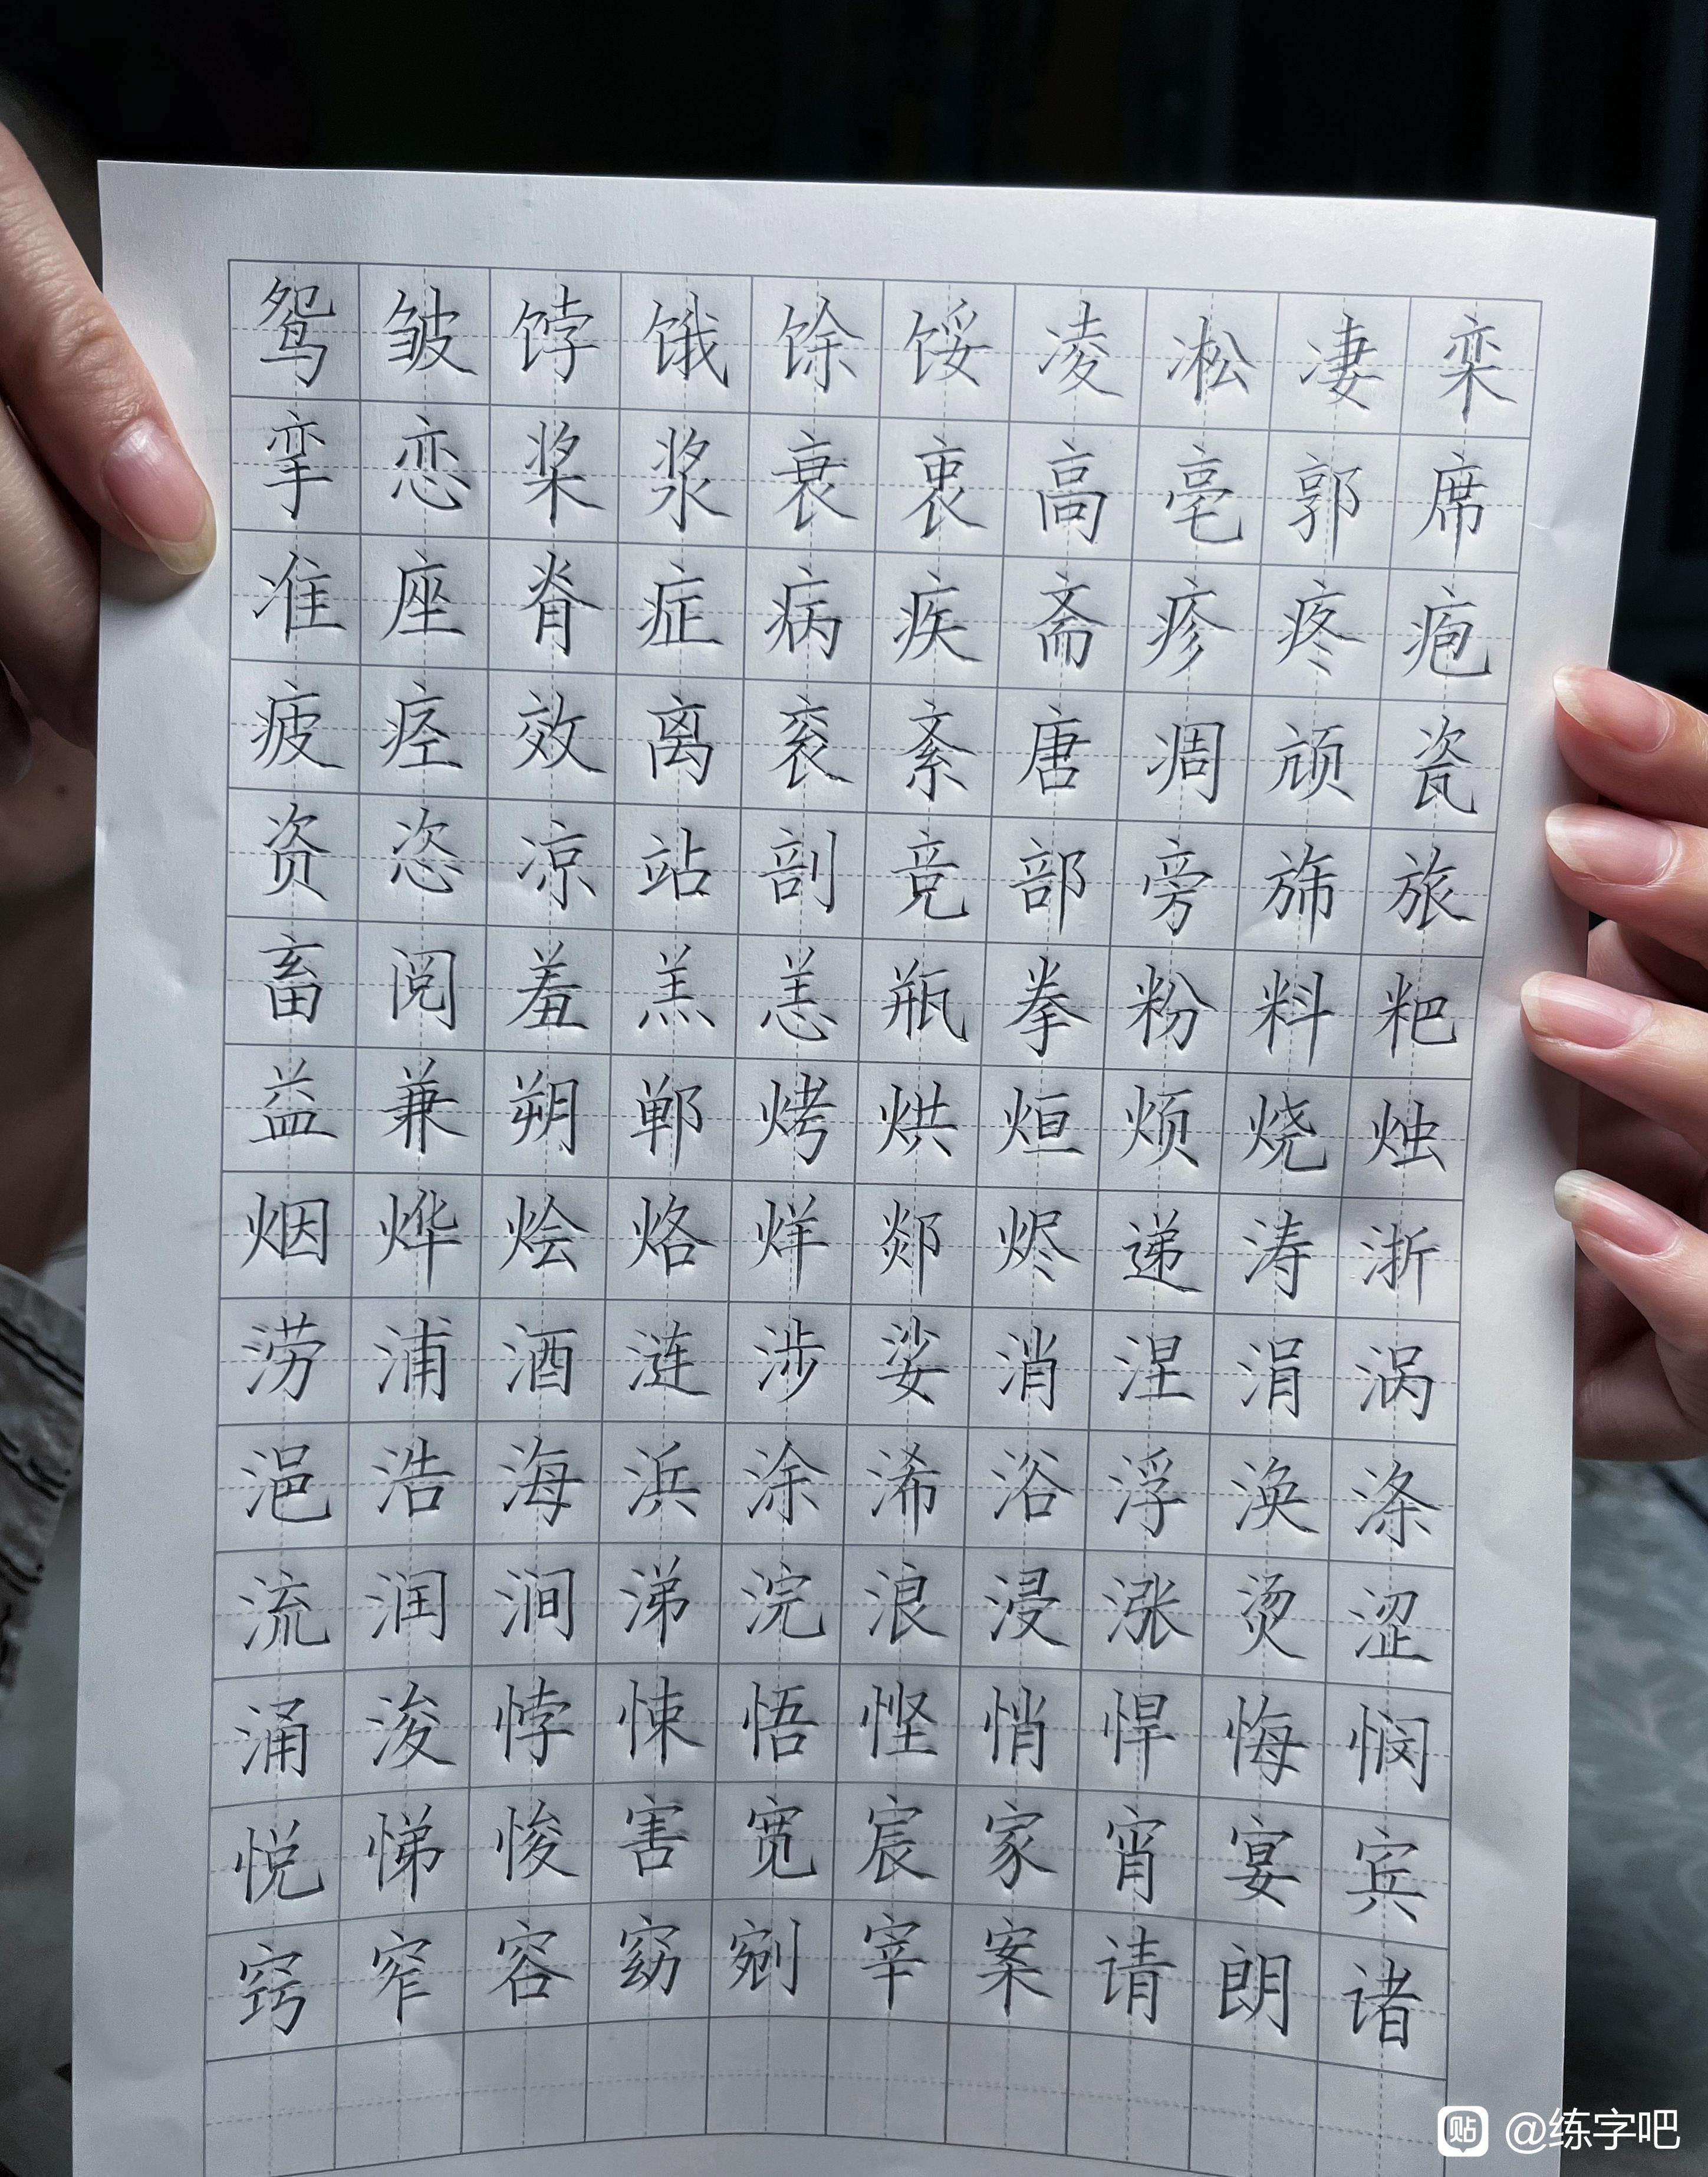 鸳皱饽饿馀馁凌凇凄栾
挛恋桨浆衰衷高亳郭席
准座脊症病疾斋疹疼疱
疲痉效离衮紊唐凋颃瓷
资恣凉站剖竞部旁旆旅
畜阅羞羔恙瓶拳粉料粑
益兼朔郸烤烘烜烦烧烛
烟烨烩烙烊郯烬递涛浙
涝浦酒涟涉娑消涅涓涡
浥浩海浜涂浠浴浮涣涤
流润涧涕浣浪浸涨烫涩
涌浚悖悚悟悭悄悍悔悯
悦悌悛害宽宸家宵宴宾
窍窄容窈剜宰案请朗诸
贴 @练字吧